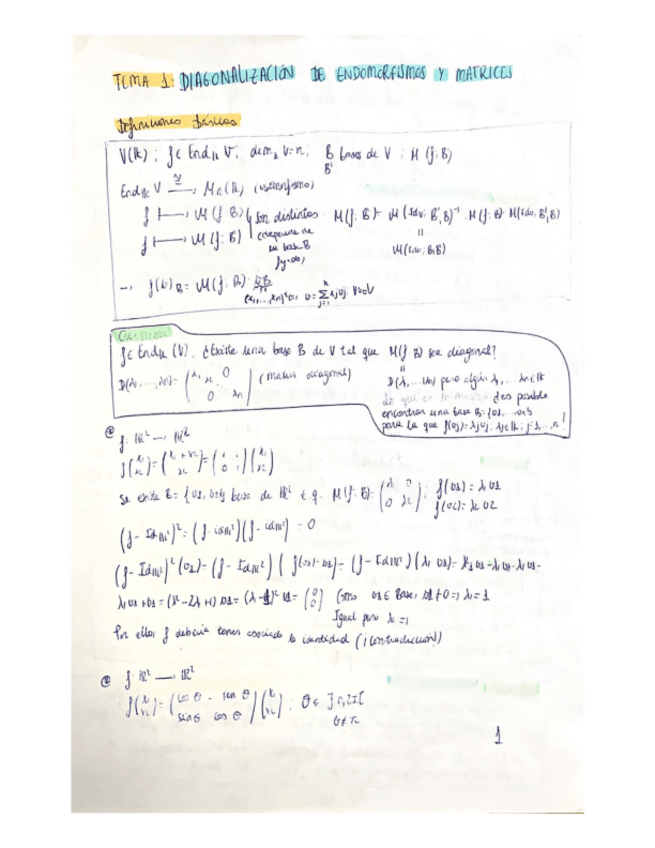 TEMA 1: DIAGONALIZACIÓN DE ENDOMORFISMOS Y MATRICES
Definiciones básicas
V(lk); f ∈ End_lk V; dim_k V = n; B bases de V; M(f; B)
B'
End_lk V ≅ → M_n(lk) (isomorfismo)
f ⟼ M(f; B) son distintos M(f; B') = M(idv; B', B)^-1 · M(f; B) · M(idv, B', B)
f ⟼ M(f; B') depende de
la base B
M(idv; B, B')
→ f(v)_B = M(f; B) · v_B
v = Σ xj vj ∀v∈V
f ∈ End_lk (V). ¿Existe una base B de V tal que M(f; B) sea diagonal?
D(λ1, ..., λn) = (λ1 λ2 0 0 λn) (matriz diagonal)
D(λ1, ..., λn) para algún λ1, ..., λn ∈ lk
Lo que es lo mismo ¿es posible
encontrar una base B = {v1, ..., vn}
para la que f(vj) = λj vj; λj ∈ lk; j = 1, ..., n?
f: IR² → IR²
f(x1 x2) = (x1 + x2 x2) = (1 1 0 1)(x1 x2)
Se existe B = {v1, v2} base de IR² t.q. M(f; B) = (λ1 0 0 λ2); f(v1) = λ1 v1
f(v2) = λ2 v2
(f - Id_IR²)² = (f - id_IR²)(f - id_IR²) = 0
(f - Id_IR²)² (v1) = (f - Id_IR²)(f(v1) - v1) = (f - Id_IR²)(λ1 v1 - v1) = λ1² v1 - λ1 v1 -
λ1 v1 + v1 = (λ² - 2λ + 1) v1 = (λ - 1)² v1 = (0 0) Como v1 ∈ Base, v1 ≠ 0 ⇒ λ = 1
Igual para λ2 = 1
Por ello, f debería tener asociado la identidad (¡Contradicción!)
f: IR² → IR²
f(x1 x2) = (cos θ - sen θ sin θ cos θ)(x1 x2); θ ∈ ]0, 2π[
θ ≠ π
1